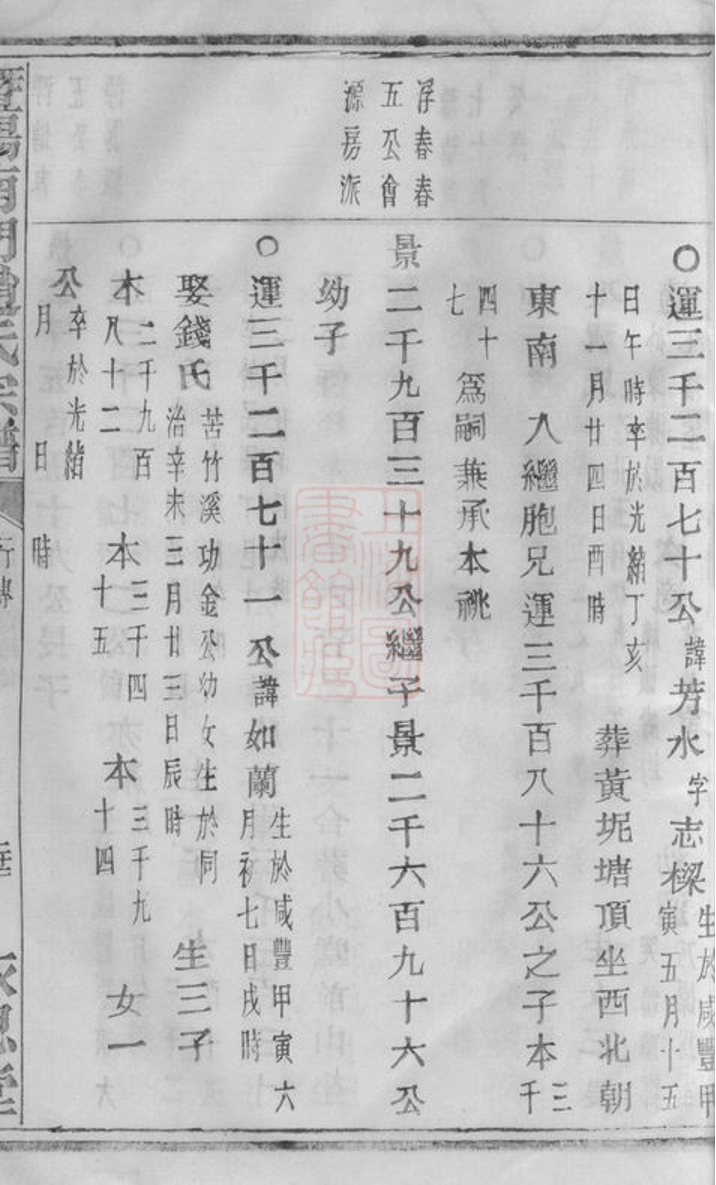 浮春春
五公會
源房派
○運三千二百七十公諱芳水字志樑生於咸豐甲寅五月十五
日午時卒於光緒丁亥十一月廿四日酉時葬黃坭塘頂坐西北朝
東南入繼胞兄運三千百八十六公之子本三千
四十七為嗣兼承本祧
景二千九百三十九公繼子景二千六百九十六公
幼子
○運三千二百七十一公諱如蘭生於咸豐甲寅六月初七日戌時
娶錢氏苦竹溪功金公幼女生於同治辛未三月廿三日辰時生三子
本二千九百八十二本三千四十五本三千九十四女一
公卒於光緒月日時
暨陽南門趙氏宗譜
行傳